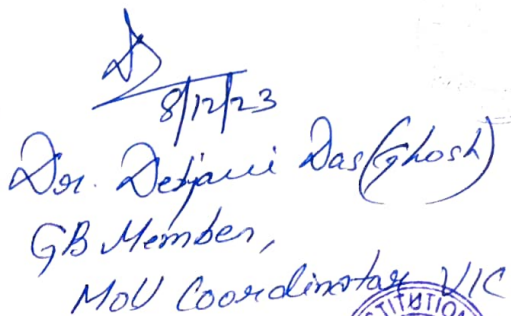 8/12/23
Dr. Debjani Das (Ghosh)
GB Member,
MoU Coordinator VIC
TITUTION